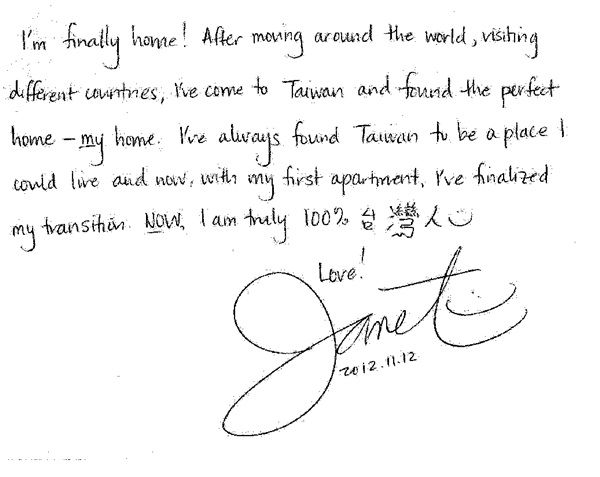 I'm finally home! After moving around the world, visiting
different countries, I've come to Taiwan and found the perfect
home - my home. I've always found Taiwan to be a place I
could live and now, with my first apartment, I've finalized
my transition. NOW, I am truly 100% 台灣人
Love!
Janet
2012.11.12